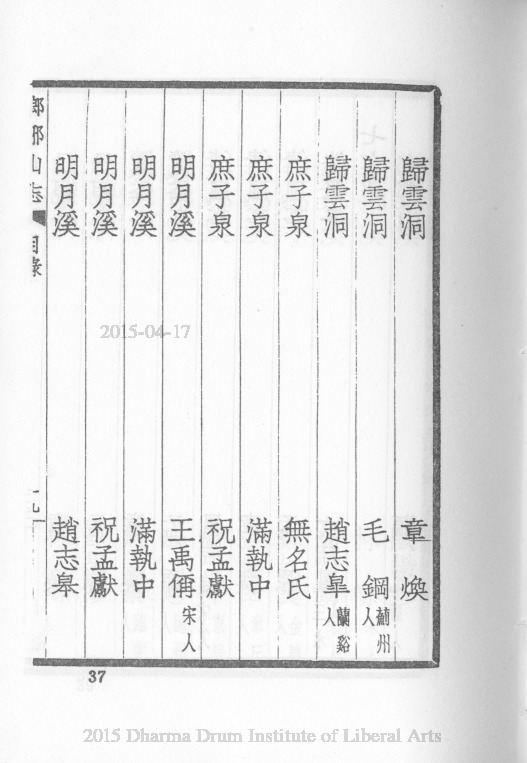 歸雲洞 章煥
歸雲洞 毛鋼 州人
歸雲洞 趙志皐 蘭谿人
庶子泉 無名氏
庶子泉 滿執中
庶子泉 祝孟獻
明月溪 王禹偁 宋人
明月溪 滿執中
明月溪 祝孟獻
明月溪 趙志皋
山志 目錄
37
2015-04-17
2015 Dharma Drum Institute of Liberal Arts